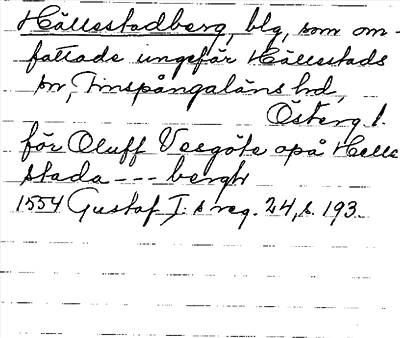 Hällestadberg, blg, som om-
fattade ungefär Hällestads
sn, Finspångaläns hd,
Österg. l.
för Oluff Vesgöte opå Helle
stada --- bergh
1554 Gustaf I:s reg. 24, s. 193.